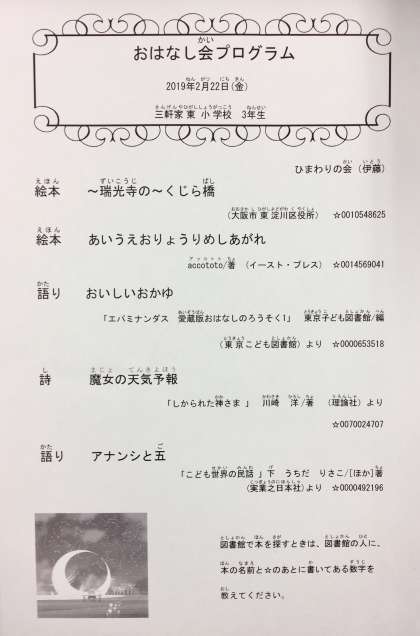 おはなし会プログラム
2019年2月22日(金)
三軒家東小学校 3年生
ひまわりの会 (伊藤)
絵本 ～瑞光寺の～くじら橋
(大阪市東淀川区役所) ☆0010548625
絵本 あいうえおりょうりめしあがれ
accototo/著 (イースト・プレス) ☆0014569041
語り おいしいおかゆ
「エパミナンダス 愛蔵版おはなしのろうそく1」 東京子ども図書館/編
(東京こども図書館) より ☆0000653518
詩 魔女の天気予報
「しかられた神さま」 川崎 洋/著 (理論社) より
☆0070024707
語り アナンシと五
「こども世界の民話」下 うちだ りさこ/[ほか]著
(実業之日本社)より ☆0000492196
図書館で本を探すときは、図書館の人に、
本の名前と☆のあとに書いてある数字を
教えてください。